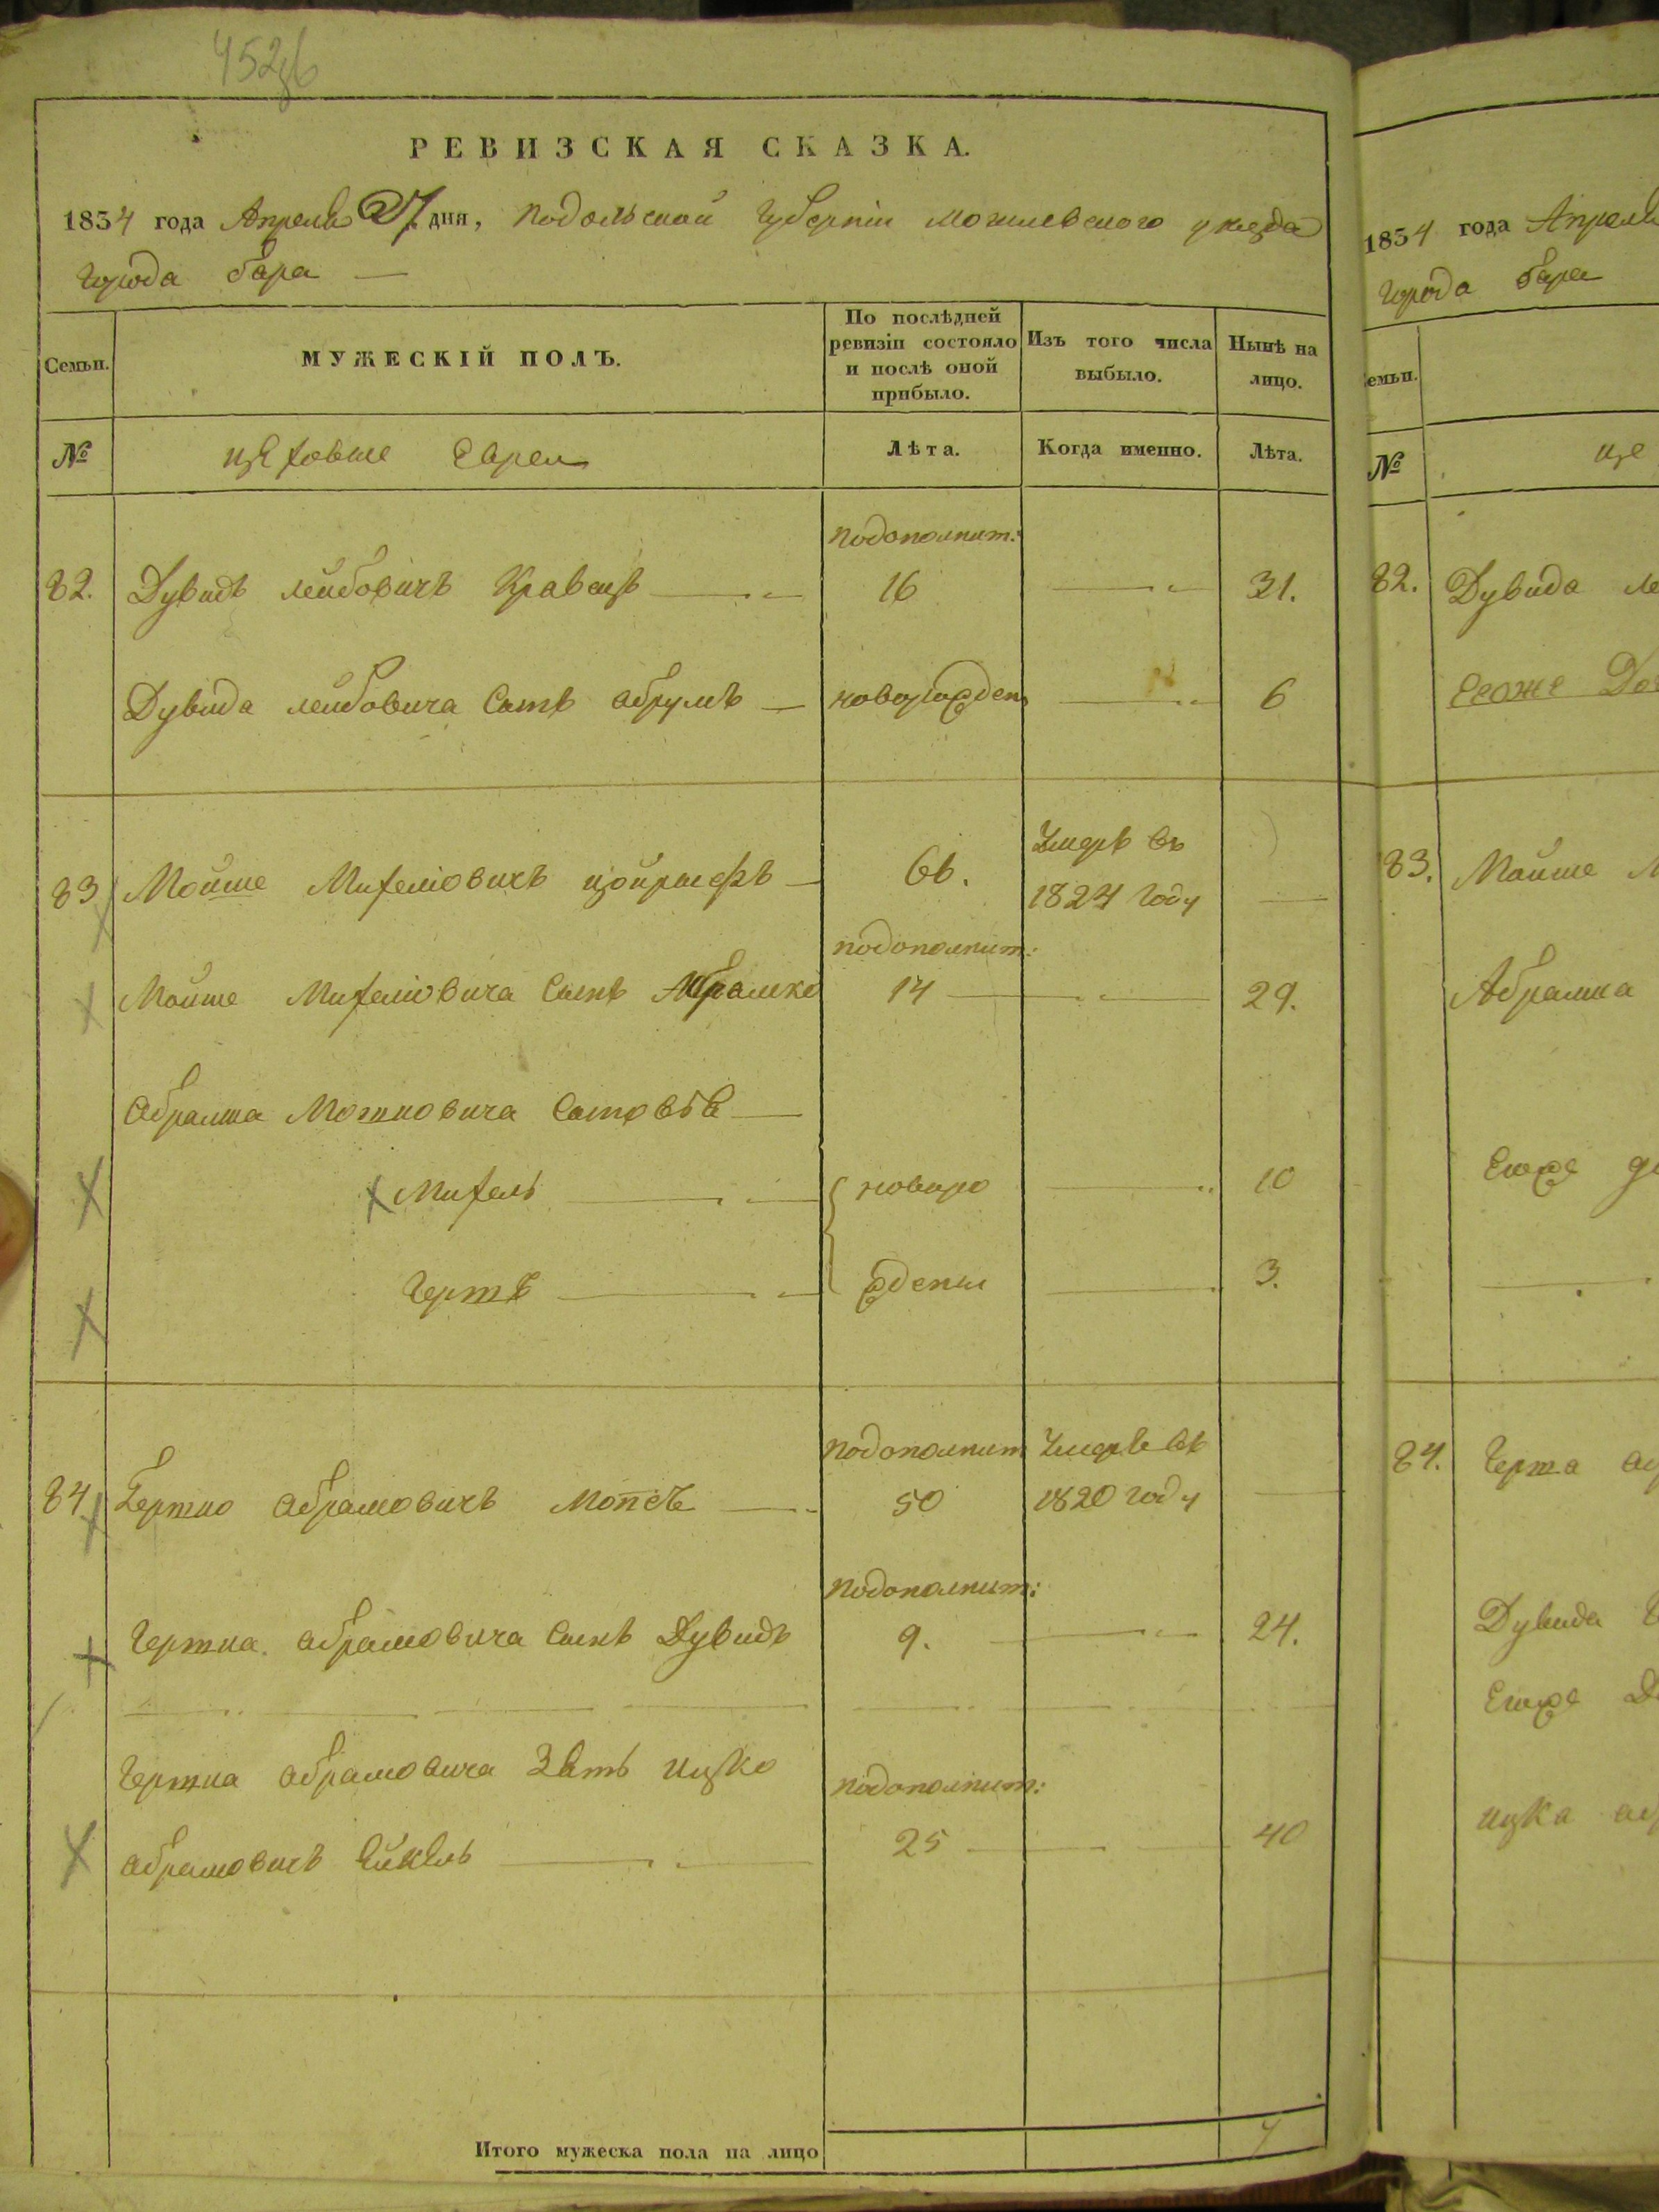 452об
РЕВИЗСКАЯ СКАЗКА.
1834 года Апреля 27 дня, Подольской Губерніи Могилевского уезда
Города Бара —
Семьи.
МУЖЕСКІЙ ПОЛЪ.
По послѣдней ревизіи состояло и послѣ оной прибыло.
Изъ того числа выбыло.
Нынѣ на лицо.
№
Евреи
Лѣта.
Когда именно.
Лѣта.
подополнит:
82. Дувидъ Лейбовичъ Кравецъ 16 31.
Дувида Лейбовича Сынъ Абрумъ — новорожден 6
Умеръ въ
83 Мойше Михелiовичъ 66. 1824 Году
подополнит:
Мойше Михелiовича Сынъ Абрамко 14 29.
Абрамка Мошковича Сыновья
Михель новоро 10
Гершъ ждены 3.
подополнит Умеръ въ
84 Гершко Абрамовичъ 50 1820 Году
подополнит:
Гершка Абрамовича Сынъ Дувидъ 9. 24.
Гершка Абрамовича Зять Ицко подополнит:
Абрамовичъ 25 40
Итого мужеска пола на лицо 7
1834 года Апреля
Города Бара
емьи.
№
це
82. Дувида ле
Егоже До
83. Мойше М
Абрамка
Егоже д
84. Герша
Дувида
Егоже Д
Ицка аб